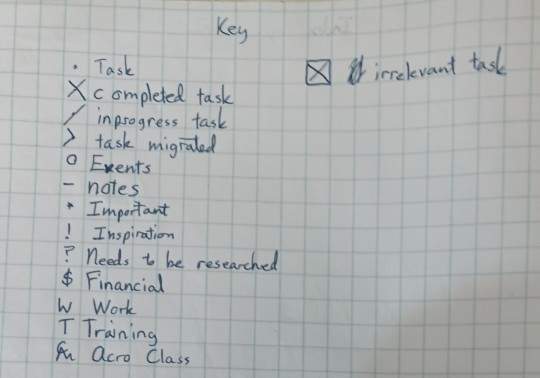 Key
· Task
X completed task
/ inprogress task
> task migrated
o Events
- notes
* Important
! Inspiration
? Needs to be researched
$ Financial
W Work
T Training
Acro Class
☒ irrelevant task